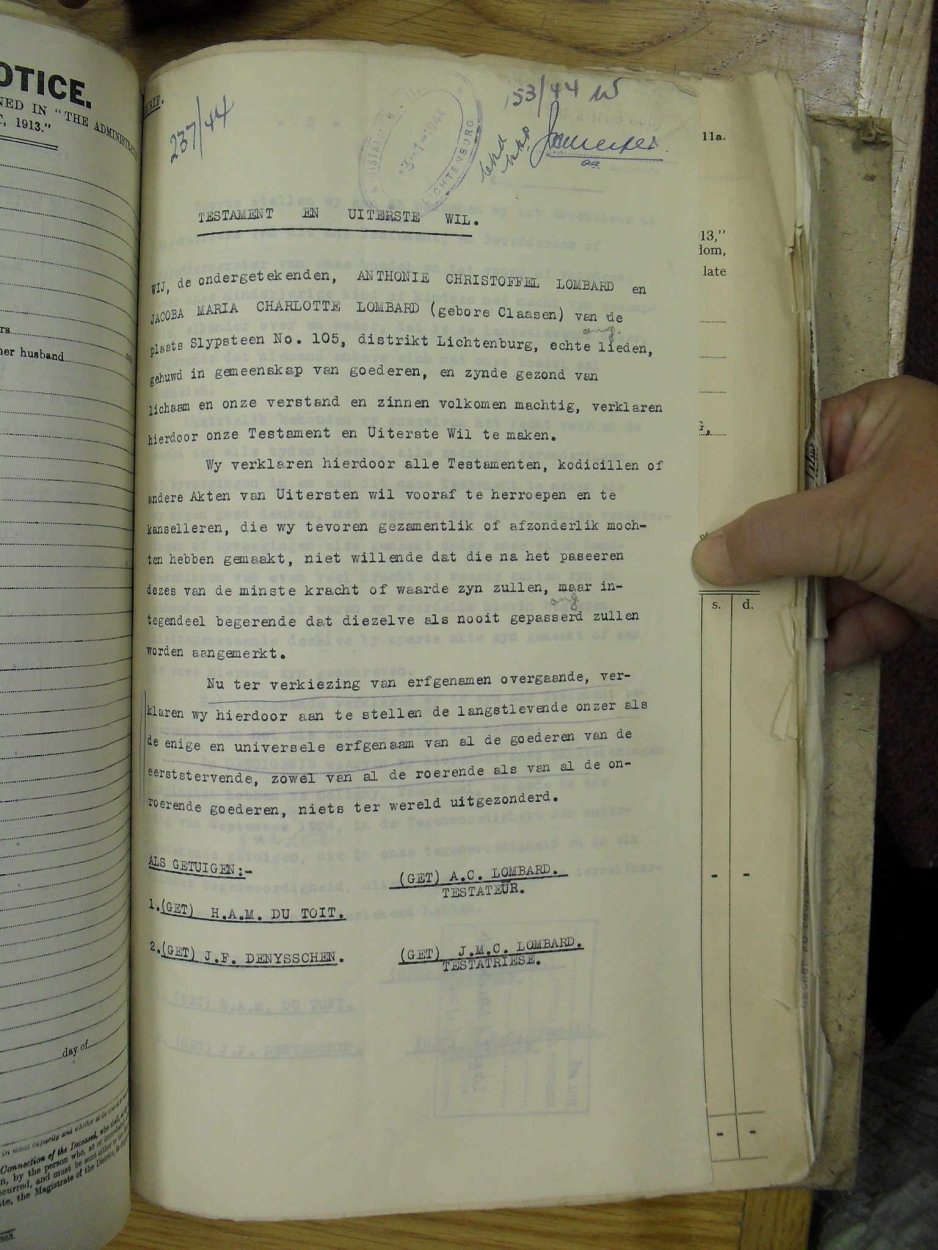 OTICE.
NED IN "THE ADMINISTRA
T, 1913."
rs
her husband
day of
237/44
153/44
DISTRIK
3-1-1944
CHTENBURG
TESTAMENT EN UITERSTE WIL.
WIJ, de ondergetekenden, ANTHONIE CHRISTOFFEL LOMBARD en
JACOBA MARIA CHARLOTTE LOMBARD (gebore Claasen) van de
plaats Slypsteen No. 105, distrikt Lichtenburg, echte lieden,
gehuwd in gemeenskap van goederen, en zynde gezond van
lichaam en onze verstand en zinnen volkomen machtig, verklaren
hierdoor onze Testament en Uiterste Wil te maken.
Wy verklaren hierdoor alle Testamenten, kodicillen of
andere Akten van Uitersten wil vooraf te herroepen en te
kanselleren, die wy tevoren gezamentlik of afzonderlik moch-
ten hebben gemaakt, niet willende dat die na het paseeren
dezes van de minste kracht of waarde zyn zullen, maar in-
tegendeel begerende dat diezelve als nooit gepasserd zullen
worden aangemerkt.
Nu ter verkiezing van erfgenamen overgaande, ver-
klaren wy hierdoor aan te stellen de langstlevende onzer als
de enige en universele erfgenaam van al de goederen van de
eerststervende, zowel van al de roerende als van al de on-
roerende goederen, niets ter wereld uitgezonderd.
ALS GETUIGEN:-
(GET) A.C. LOMBARD.
TESTATEUR.
1.(GET) H.A.M. DU TOIT.
2.(GET) J.F. DENYSSCHEN.
(GET) J.M.C. LOMBARD.
TESTATRIESE.
11a.
13,"
dom,
late
s. d.
- -
- -